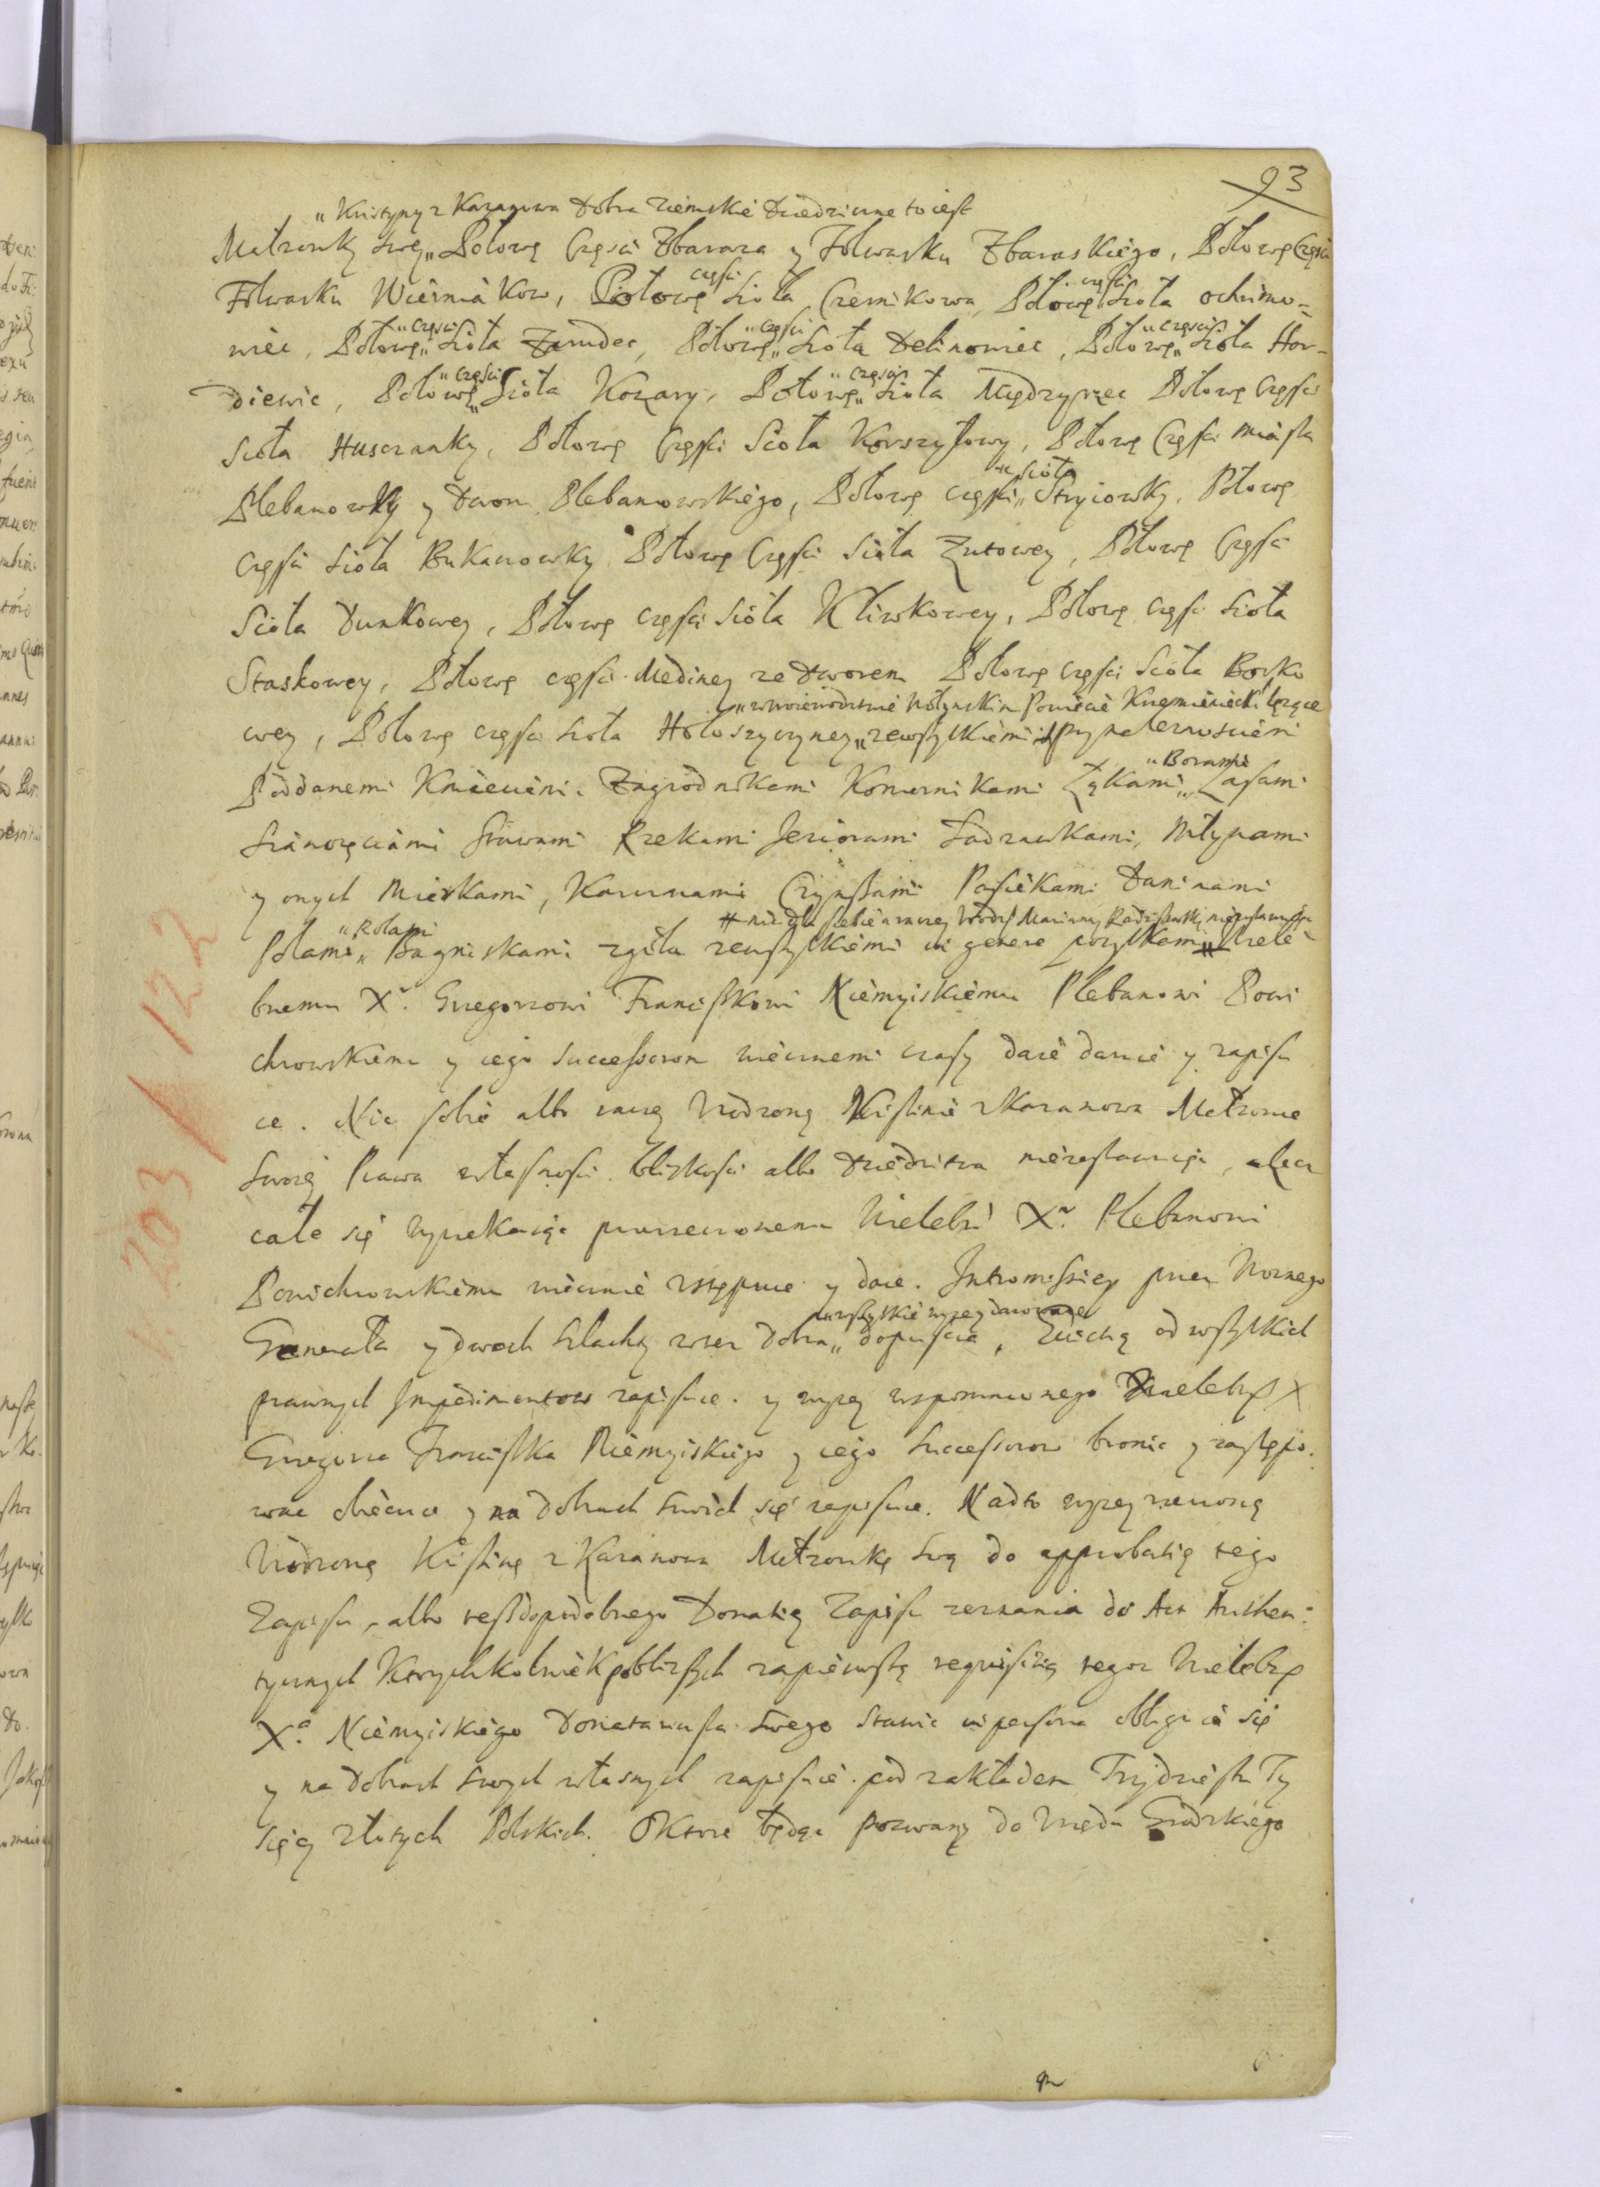 93
„Kristyny z Kazanowa Dobra Ziemskie Dziedziczne to iest
Małzonky swey„ Połowę Części Zbaraza y Folwarku Zbaraskiego, Połowę Części
Folwarku Wierniakow, Połowę części Sioła Czernikowa, Połowę części Sioła ochrimo-
wiec, Połowę „Części Sioła Zarudec, Połowę „Części Sioła Delinowiec, Połowę „Części Sioła Hor-
diewic, Połowę „Części Sioła Kozary, Połowę „Części Sioła Międzyrzec Połowę Części
Sioła Husczanky, Połowę Części Sioła Korszyłowy, Połowę Części miasta
Plebanowky y Dworu Plebanowskiego, Połowę części „Sioła Stryiowky, Połowę
Części Sioła Bukanowky Połowę Części Sioła Zutowey, Połowę Części
Sioła Dunkowey, Połowę części Sioła Kliwkowey, Połowę części Sioła
Staskowey, Połowę części Mediney ze Dworem Połowę części Sioła Borko
wey, Połowę części Sioła Hołoszyczyney „wwoiewodztwie Wołynskim Powiecie Krzemienieckim lezące zewszytkiemi przynaleznosciami
Poddanemi Kmieciemi Zagrodnikami Komornikami Łąkami „Borami Lasami
Sianozęciami Stawami Rzekami Jeziorami Sadzawkami, Młynami
y onych Miarkami, Karczmami Czynszami Pasiekami Daninami
Polami „Rolami Bagniskami zgoła zewszytkiemi in genere pozytkami # nic dla siebie Wiele-
bnemu X. Grzegorzowi Franciszkowi Niemyiskiemu Plebanowi Powi
chrowskiemu y iego Successorom wiecznemi czasy daie daruie y zapisu
ie. Nic sobie albo Urodzoney Kristinie z Kazanowa Małzonce
Swoiey Prawa własnosci bliskosci albo Dziedzictwa niezostawuiąc, alecz
cale się wyrzekaiąc pomienionemu Wielebn X. Plebanowi
Powichrowskiemu wiecznie wstępuie y daie. Intromissiey przez Woznego
Generała y dwoch Szlachty wten Dobra „wszytkie wyzey darowane dopuscia, Ewictią od wszytkich
prawnych Impedimentow zapisuie. y wyzey wspomnionego Wielebn X
Grzegorza Franciszka Niemyiskiego y iego Successorow bronic y zastępo-
wac obiecuie y na Dobrach swoich się zapisuie. Nadto wyzey rzeczoną
Urodzoną Kristinę z Kazanowa Małzonkę Swą do approbatię tego
Zapisu, albo tesz do podobnego Donatię Zapisu zeznania do Act Authen-
tycznych Ktorychkolwiek pobliszych zapierwszą requisitią tegoz Wielebn
X. Niemyiskiego Donatariusza Swego Stawic in persona obliguie się
y na Dobrach Swych własnych zapisuie pod zakładem Trzydziestu Ty
sięcy złotych Polskich. O Ktore będąc pozwany do Urzędu Grodzkiego
203 / 122